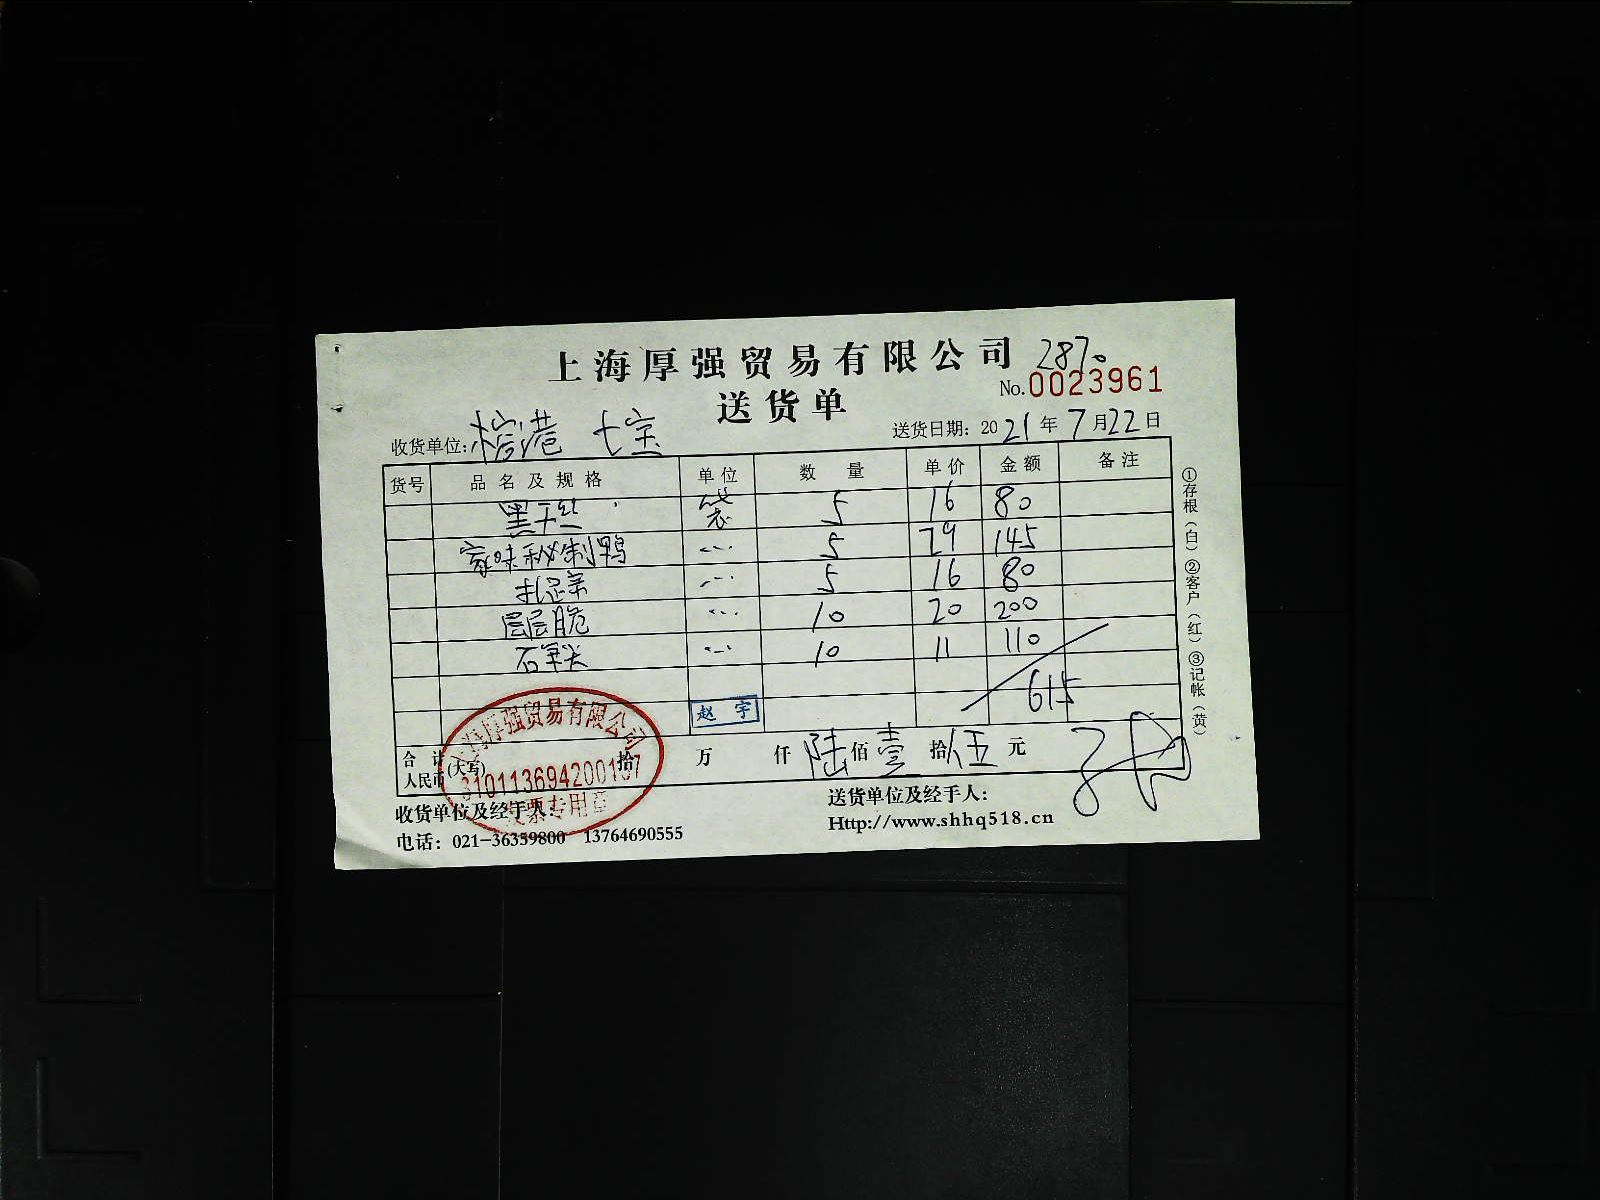 上海厚强贸易有限公司 2870
No.0023961
送货单
收货单位: 榕港 七宝 送货日期: 2021年7月22日
货号 品名及规格 单位 数量 单价 金额 备注
黑千丝 袋 5 16 80
家味秘制鸭 5 29 145
5 16 80
层层脆 10 20 200
10 11 110
615
赵宇
合计人民币(大写) 拾 万 仟 陆佰壹拾伍元
上海厚强贸易有限公司
310113694200157
发票专用章
收货单位及经手人: 送货单位及经手人:
电话: 021-36359800 13764690555 Http://www.shhq518.cn
①存根(白)②客户(红)③记帐(黄)